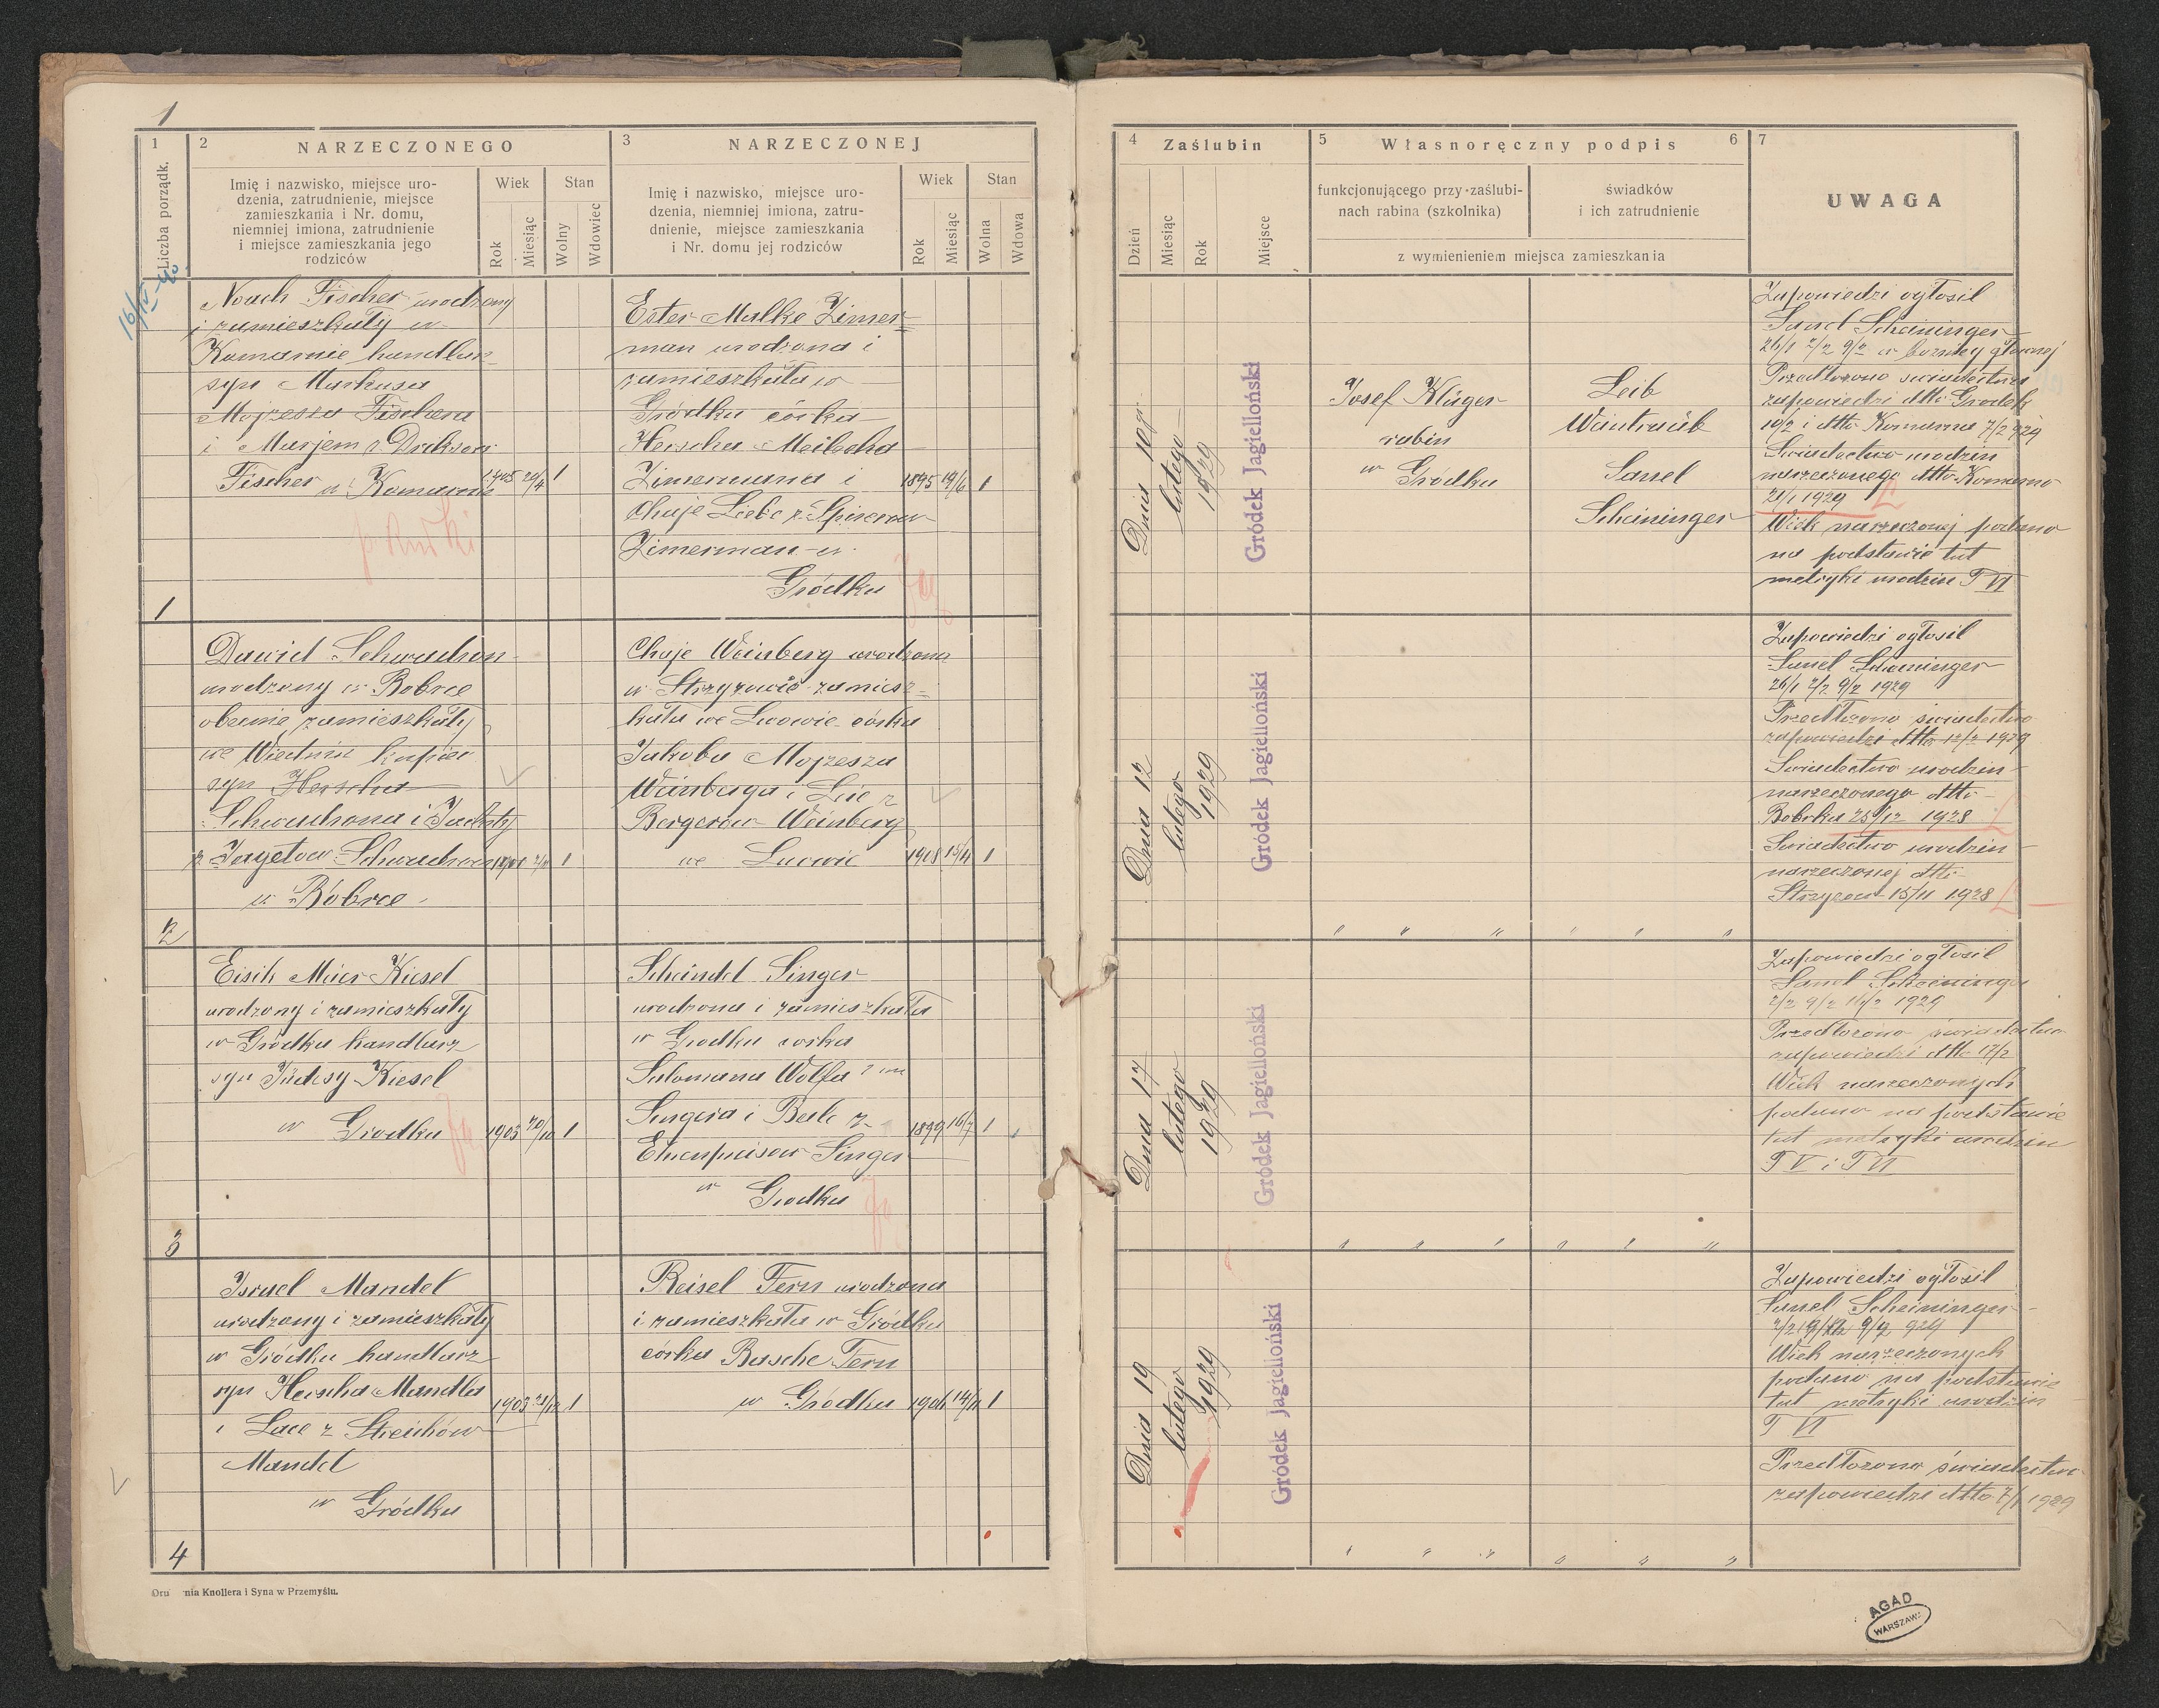 1
1
Liczba porządk.
2
NARZECZONEGO
Imię i nazwisko, miejsce uro-
dzenia, zatrudnienie, miejsce
zamieszkania i Nr. domu,
niemniej imiona, zatrudnienie
i miejsce zamieszkania jego
rodziców
Wiek
Rok
Miesiąc
Stan
Wolny
Wdowiec
3
NARZECZONEJ
Imię i nazwisko, miejsce uro-
dzenia, niemniej imiona, zatru-
dnienie, miejsce zamieszkania
i Nr. domu jej rodziców
Wiek
Rok
Miesiąc
Stan
Wolna
Wdowa
4
Zaślubin
Dzień
Miesiąc
Rok
Miejsce
5
Własnoręczny podpis
6
funkcjonującego przy zaślubi-
nach rabina (szkolnika)
świadków
i ich zatrudnienie
z wymienieniem miejsca zamieszkania
7
UWAGA
1
Noach Fischer urodzony
i zamieszkały w
Komarnie handlarz
syn Markusa
Mojżesza Fischera
i Marjem z
Fischer w Komarnie
1905 29/4 1
Ester Malke Zimer-
man urodzona i
zamieszkała w
Gródku córka
Herscha Meilecha
Zimermana i
Chaje Liebe z
Zimerman w
Gródku
1895 19/6 1
Dnia 10go
lutego
1929
Gródek Jagielloński
Josef Klüger
rabin
w Gródku
Leib
Weintraub
Sanel
Scheininger
Zapowiedzi ogłosił
Sanel Scheininger
26/1 2/2 9/2 w bożnicy głównej
Przedłożono świadectwa
zapowiedzi dtto Gródek
10/2 i dtto Komarno 7/2 929
Świadectwo urodzin
narzeczonego dtto Komarno
21/1 1929
Wiek narzeczonej podano
na podstawie tut
metryki urodzin T VI
2
Dawid Schwadron
urodzony w Bobrce
obecnie zamieszkały
we Wiedniu kupiec
syn Herscha
Schwadrona i
z Schwadron
w Bobrce
1
Chaje Weinberg urodzona
w Strzyżowie zamiesz-
kała we Lwowie córka
Jakoba Mojżesza
Weinberga i Leie z
Bergerów Weinberg
we Lwowie
1908 15/11 1
Dnia 12
lutego
1929
Gródek Jagielloński
" " " " " "
Zapowiedzi ogłosił
Sanel Scheininger
26/1 2/2 9/2 1929
Przedłożono świadectwo
zapowiedzi dtto 12/2 1929
Świadectwo urodzin
narzeczonego dtto
Bobrka 25/12 1928
Świadectwo urodzin
narzeczonej dtto
Strzyżów 15/11 1928
3
Eisik Meier Kiesel
urodzony i zamieszkały
w Gródku handlarz
syn Kiesel
w Gródku
1903 20/10 1
Scheindel Singer
urodzona i zamieszkała
w Gródku córka
Salomana Wolfa
Singera i Beile z
Ehrenpreisów Singer
w Gródku
1899 16/7 1
Dnia 17
lutego
1929
Gródek Jagielloński
" " " " " "
Zapowiedzi ogłosił
Sanel Scheininger
2/2 9/2 16/2 1929
Przedłożono świadectwo
zapowiedzi dtto 17/2
Wiek narzeczonych
podano na podstawie
tut metryki urodzin
T V i T VI
4
Israel Mandel
urodzony i zamieszkały
w Gródku handlarz
syn Herscha Mandla
i Lace z Streichów
Mandel
w Gródku
1903 21/12 1
Reisel Fern urodzona
i zamieszkała w Gródku
córka Basche Fern
w Gródku
1906 14/11 1
Dnia 19
lutego
1929
Gródek Jagielloński
" " " " " "
Zapowiedzi ogłosił
Sanel Scheininger
Wiek narzeczonych
podano na podstawie
tut metryki urodzin
T VI
Przedłożono świadectwo
zapowiedzi dtto 1929
nia Knollera i Syna w Przemyślu.
AGAD
WARSZAW